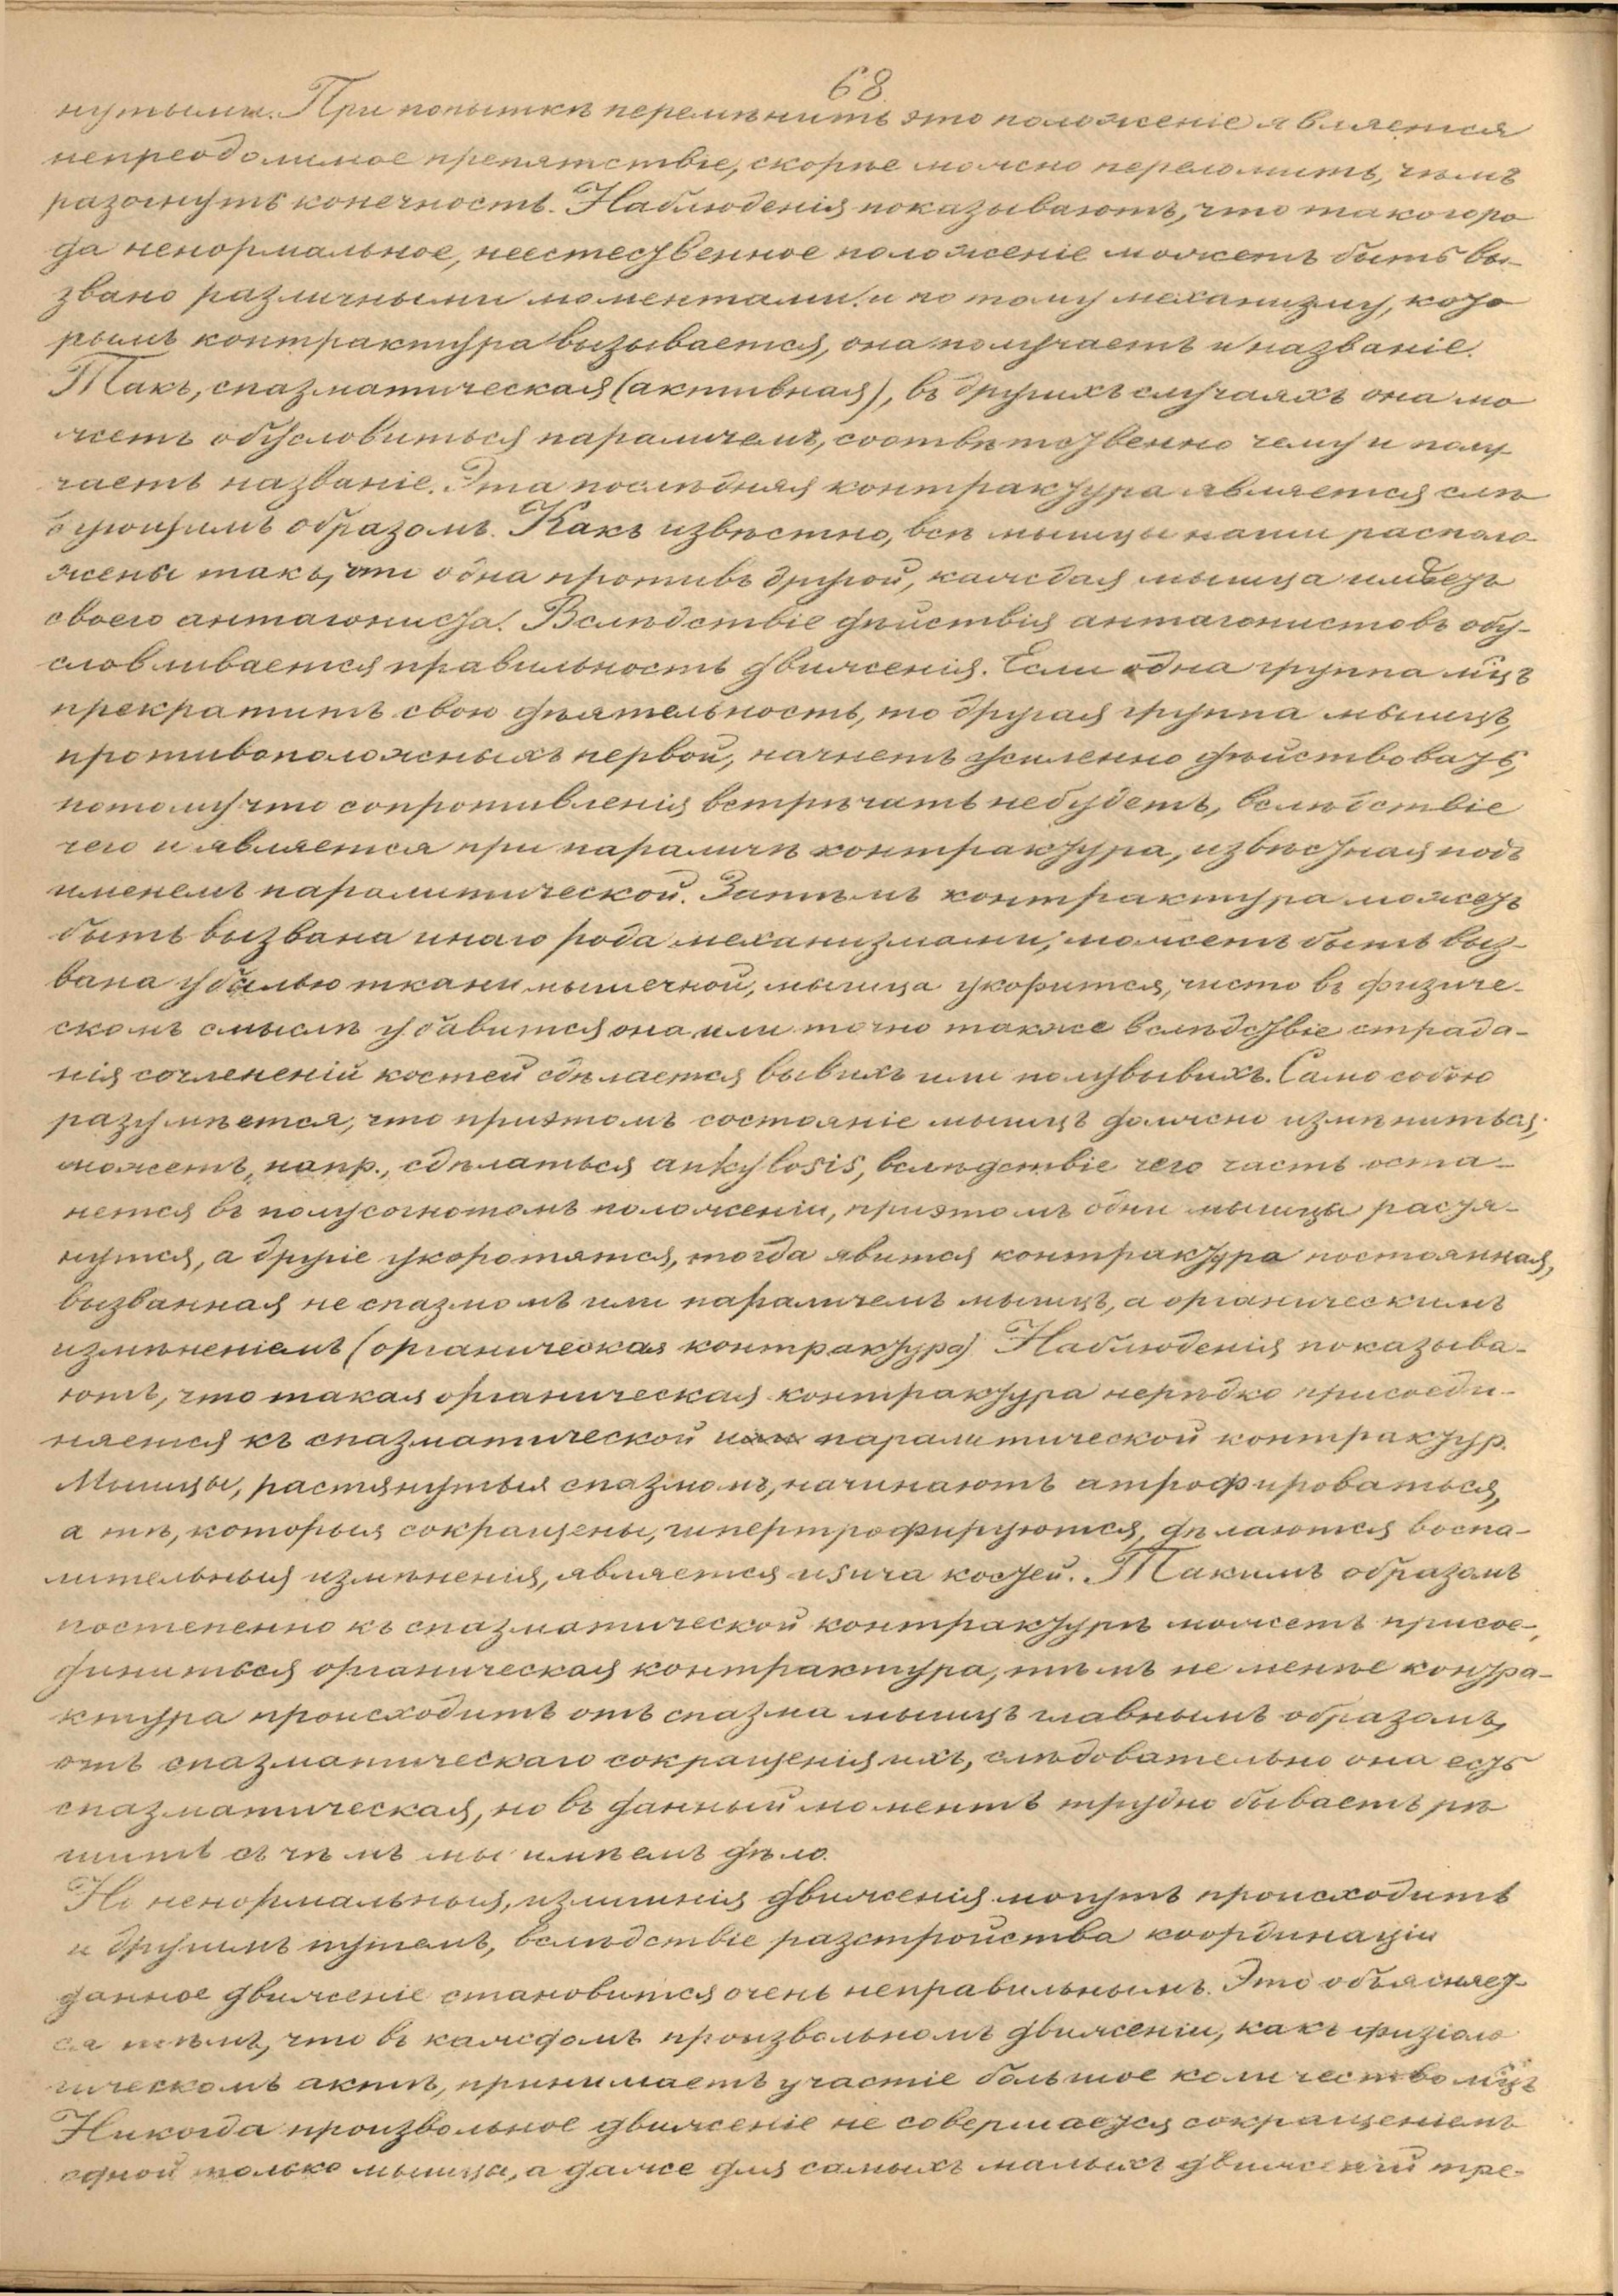 68
нутыми. При попыткѣ перемѣнить это положеніе является
непреодолимое препятствіе, скорѣе можно переломить, чѣмъ
разогнуть конечность. Наблюденія показываютъ, что такого ро
да ненормальное, неестественное положеніе можетъ быть вы-
звано различными моментами, и по тому механизму, кото
рымъ контрактура вызывается, она получаетъ и названіе.
Такъ, спазматическая (активная), въ другихъ случаяхъ она мо
жетъ обусловиться параличемъ, соотвѣтственно чему и полу
чаетъ названіе. Эта послѣдняя контрактура является слѣ
дующимъ образомъ. Какъ извѣстно, всѣ мышцы наши располо
жены такъ, что одна противъ другой, каждая мышца имѣетъ
своего антагониста. Вслѣдствіе дѣйствія антагонистовъ обу-
словливается правильность движенія. Если одна группа мцъ
прекратитъ свою дѣятельность, то другая группа мышцъ,
противоположныхъ первой, начнетъ усиленно дѣйствовать,
потому что сопротивленія встрѣчать не будетъ, вслѣдствіе
чего и является при параличѣ контрактура, извѣстная подъ
именемъ паралитической. Затѣмъ контрактура можетъ
быть вызвана инаго рода механизмами, можетъ быть выз-
вана убылью ткани мышечной, мышца укоротится, чисто въ физиче-
скомъ смыслѣ убавится она, или точно также вслѣдствіе страда-
нія сочлененій костей сдѣлается вывихъ или полувывихъ. Само собою
разумѣется, что при этомъ состояніе мышцъ должно измѣниться;
можетъ, напр., сдѣлаться ankylosis, вслѣдствіе чего часть оста-
нется въ полусогнотомъ положеніи, при этомъ одни мышцы растя-
нутся, а другіе укоротятся, тогда явится контрактура постоянная,
вызванная не спазмомъ или параличемъ мышцъ, а органическимъ
измѣненіемъ (органическая контрактура). Наблюденія показыва-
ютъ, что такая органическая контрактура нерѣдко присоеди-
няется къ спазматической или паралитической контрактур.
Мышцы, растянутыя спазмомъ, начинаютъ атрофироваться,
а тѣ, которыя сокращены, гипертрофируются, дѣлаются воспа-
лительныя измѣненія, является usura костей. Такимъ образомъ
постепенно къ спазматической контрактурѣ можетъ присое-
диниться органическая контрактура, тѣмъ не менѣе контра-
ктура происходитъ отъ спазма мышцъ главнымъ образомъ,
отъ спазматическаго сокращенія ихъ, слѣдовательно она есть
спазматическая, но въ данный моментъ трудно бываетъ рѣ
шить съ чѣмъ мы имѣемъ дѣло.
Но ненормальныя, движенія могутъ происходить
и другимъ путемъ, вслѣдствіе разстройства координаціи
данное движеніе становится очень неправильнымъ. Это объясняет-
ся тѣмъ, что въ каждомъ произвольномъ движеніи, какъ физіоло
гическомъ актѣ, принимаетъ участіе большое количество мцъ
Никогда произвольное движеніе не совершается сокращеніемъ
одной только мышцы, а даже для самыхъ малыхъ движеній тре-